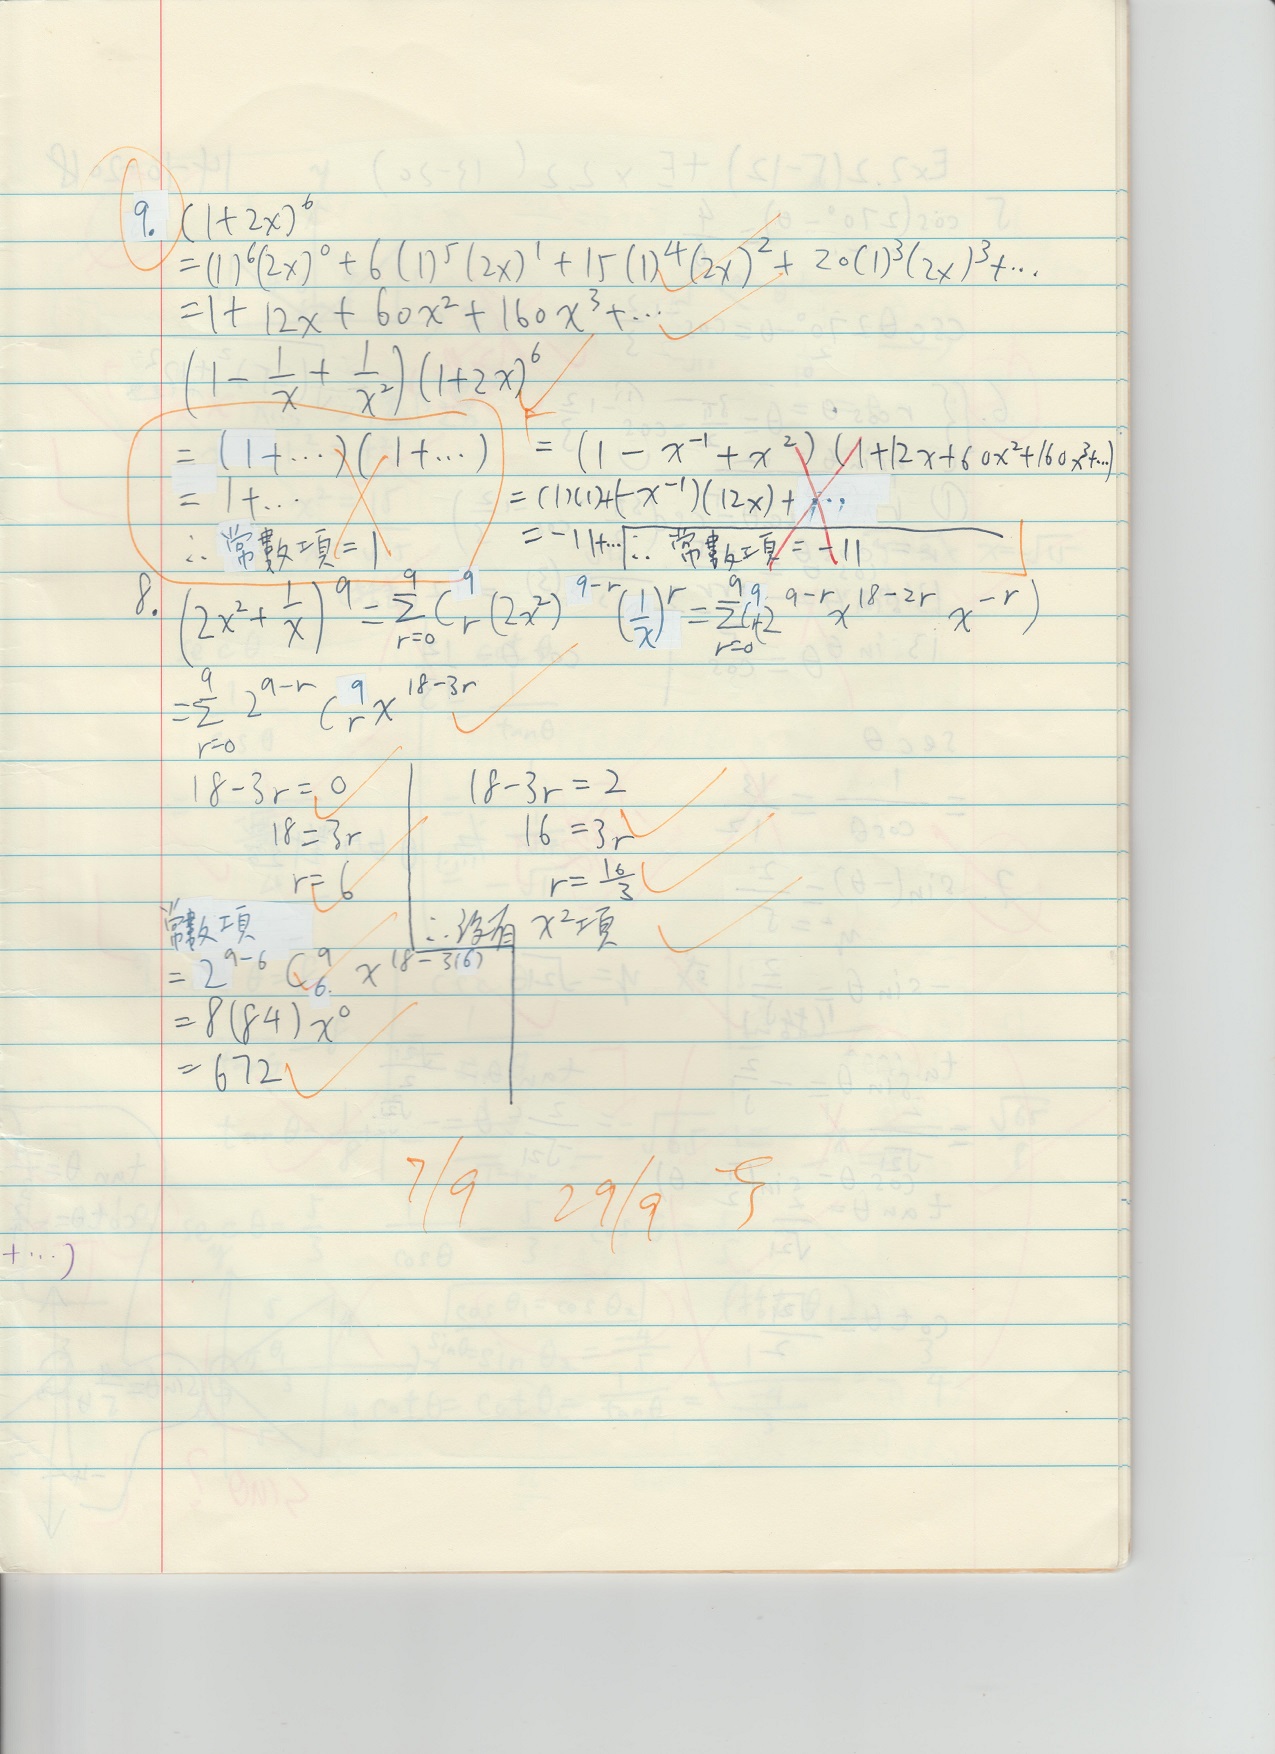 9. (1+2x)⁶
= (1)⁶(2x)⁰ + 6(1)⁵(2x)¹ + 15(1)⁴(2x)² + 20(1)³(2x)³ + ...
= 1 + 12x + 60x² + 160x³ + ...
(1 - 1/x + 1/x²)(1+2x)⁶
= (1+...)(1+...)
= 1+...
∴ 常數項 = 1
= (1 - x⁻¹ + x²)(1+12x+60x²+160x³+...)
= (1)(1)+(-x⁻¹)(12x)+...
= -11+... ∴ 常數項 = -11
8. (2x² + 1/x)⁹ = Σ_{r=0}^{9} C^9_r (2x²)^{9-r} (1/x)^r = Σ_{r=0}^{9} 2^{9-r} x^{18-2r} x^{-r})
= Σ_{r=0}^{9} 2^{9-r} C^9_r x^{18-3r}
18-3r = 0
18 = 3r
r = 6
18-3r = 2
16 = 3r
r = 16/3
∴ 沒有 x² 項
常數項
= 2^{9-6} C^9_6 x^{18-3(6)}
= 8(84) x⁰
= 672
7/9 29/9
+...)